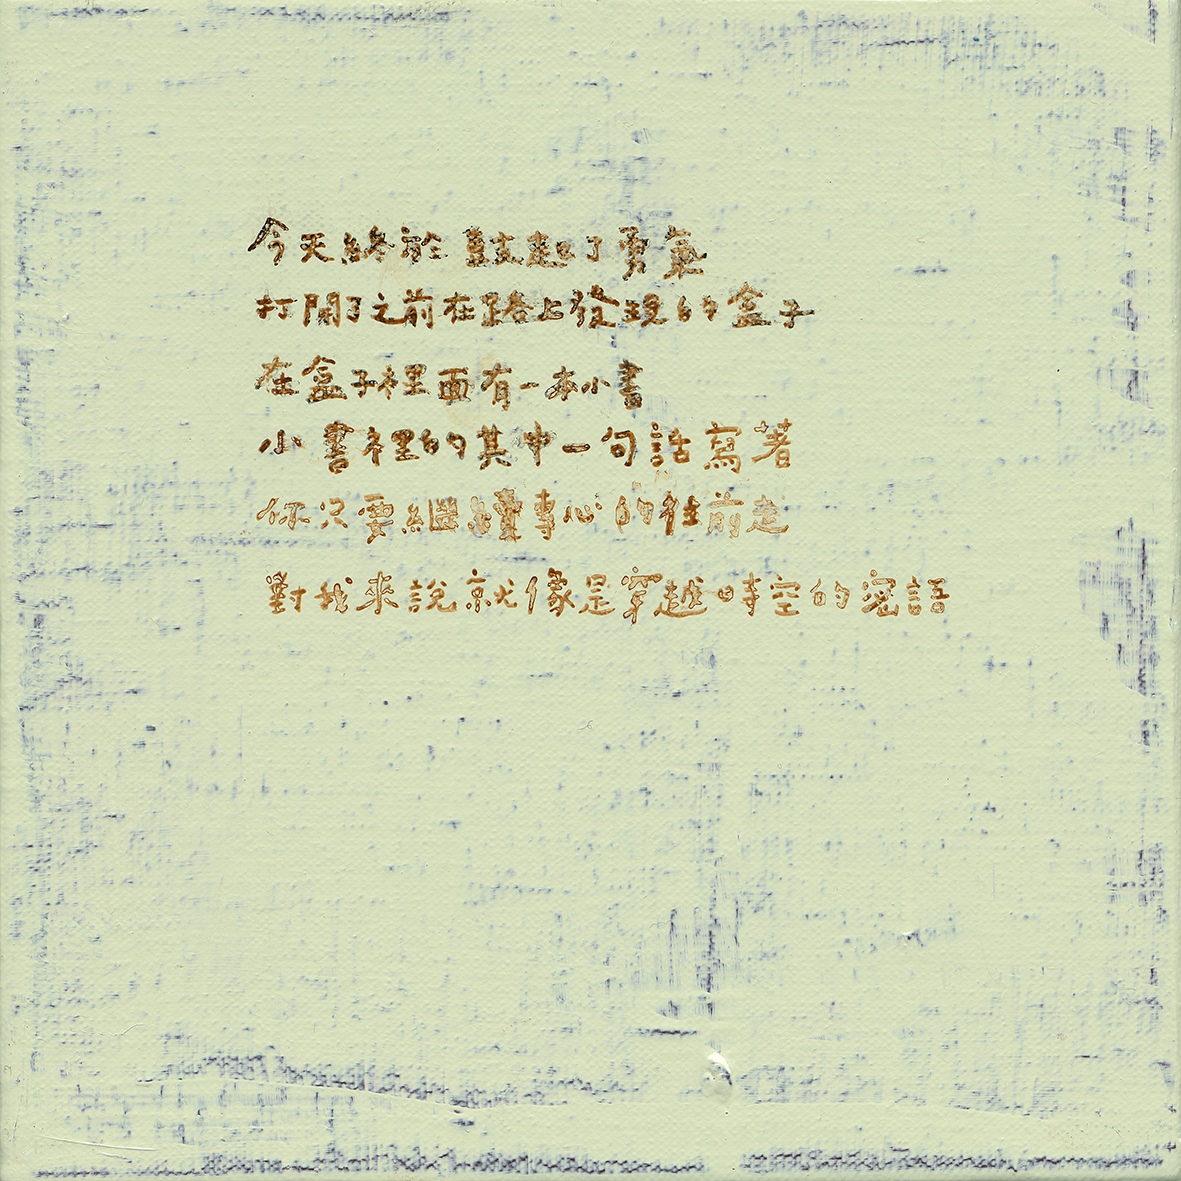 今天終於鼓起了勇氣
打開了之前在路上發現的盒子
在盒子裡面有一本小書
小書裡的其中一句話寫著
你只要繼續專心的往前走
對我來說就像是穿越時空的密語